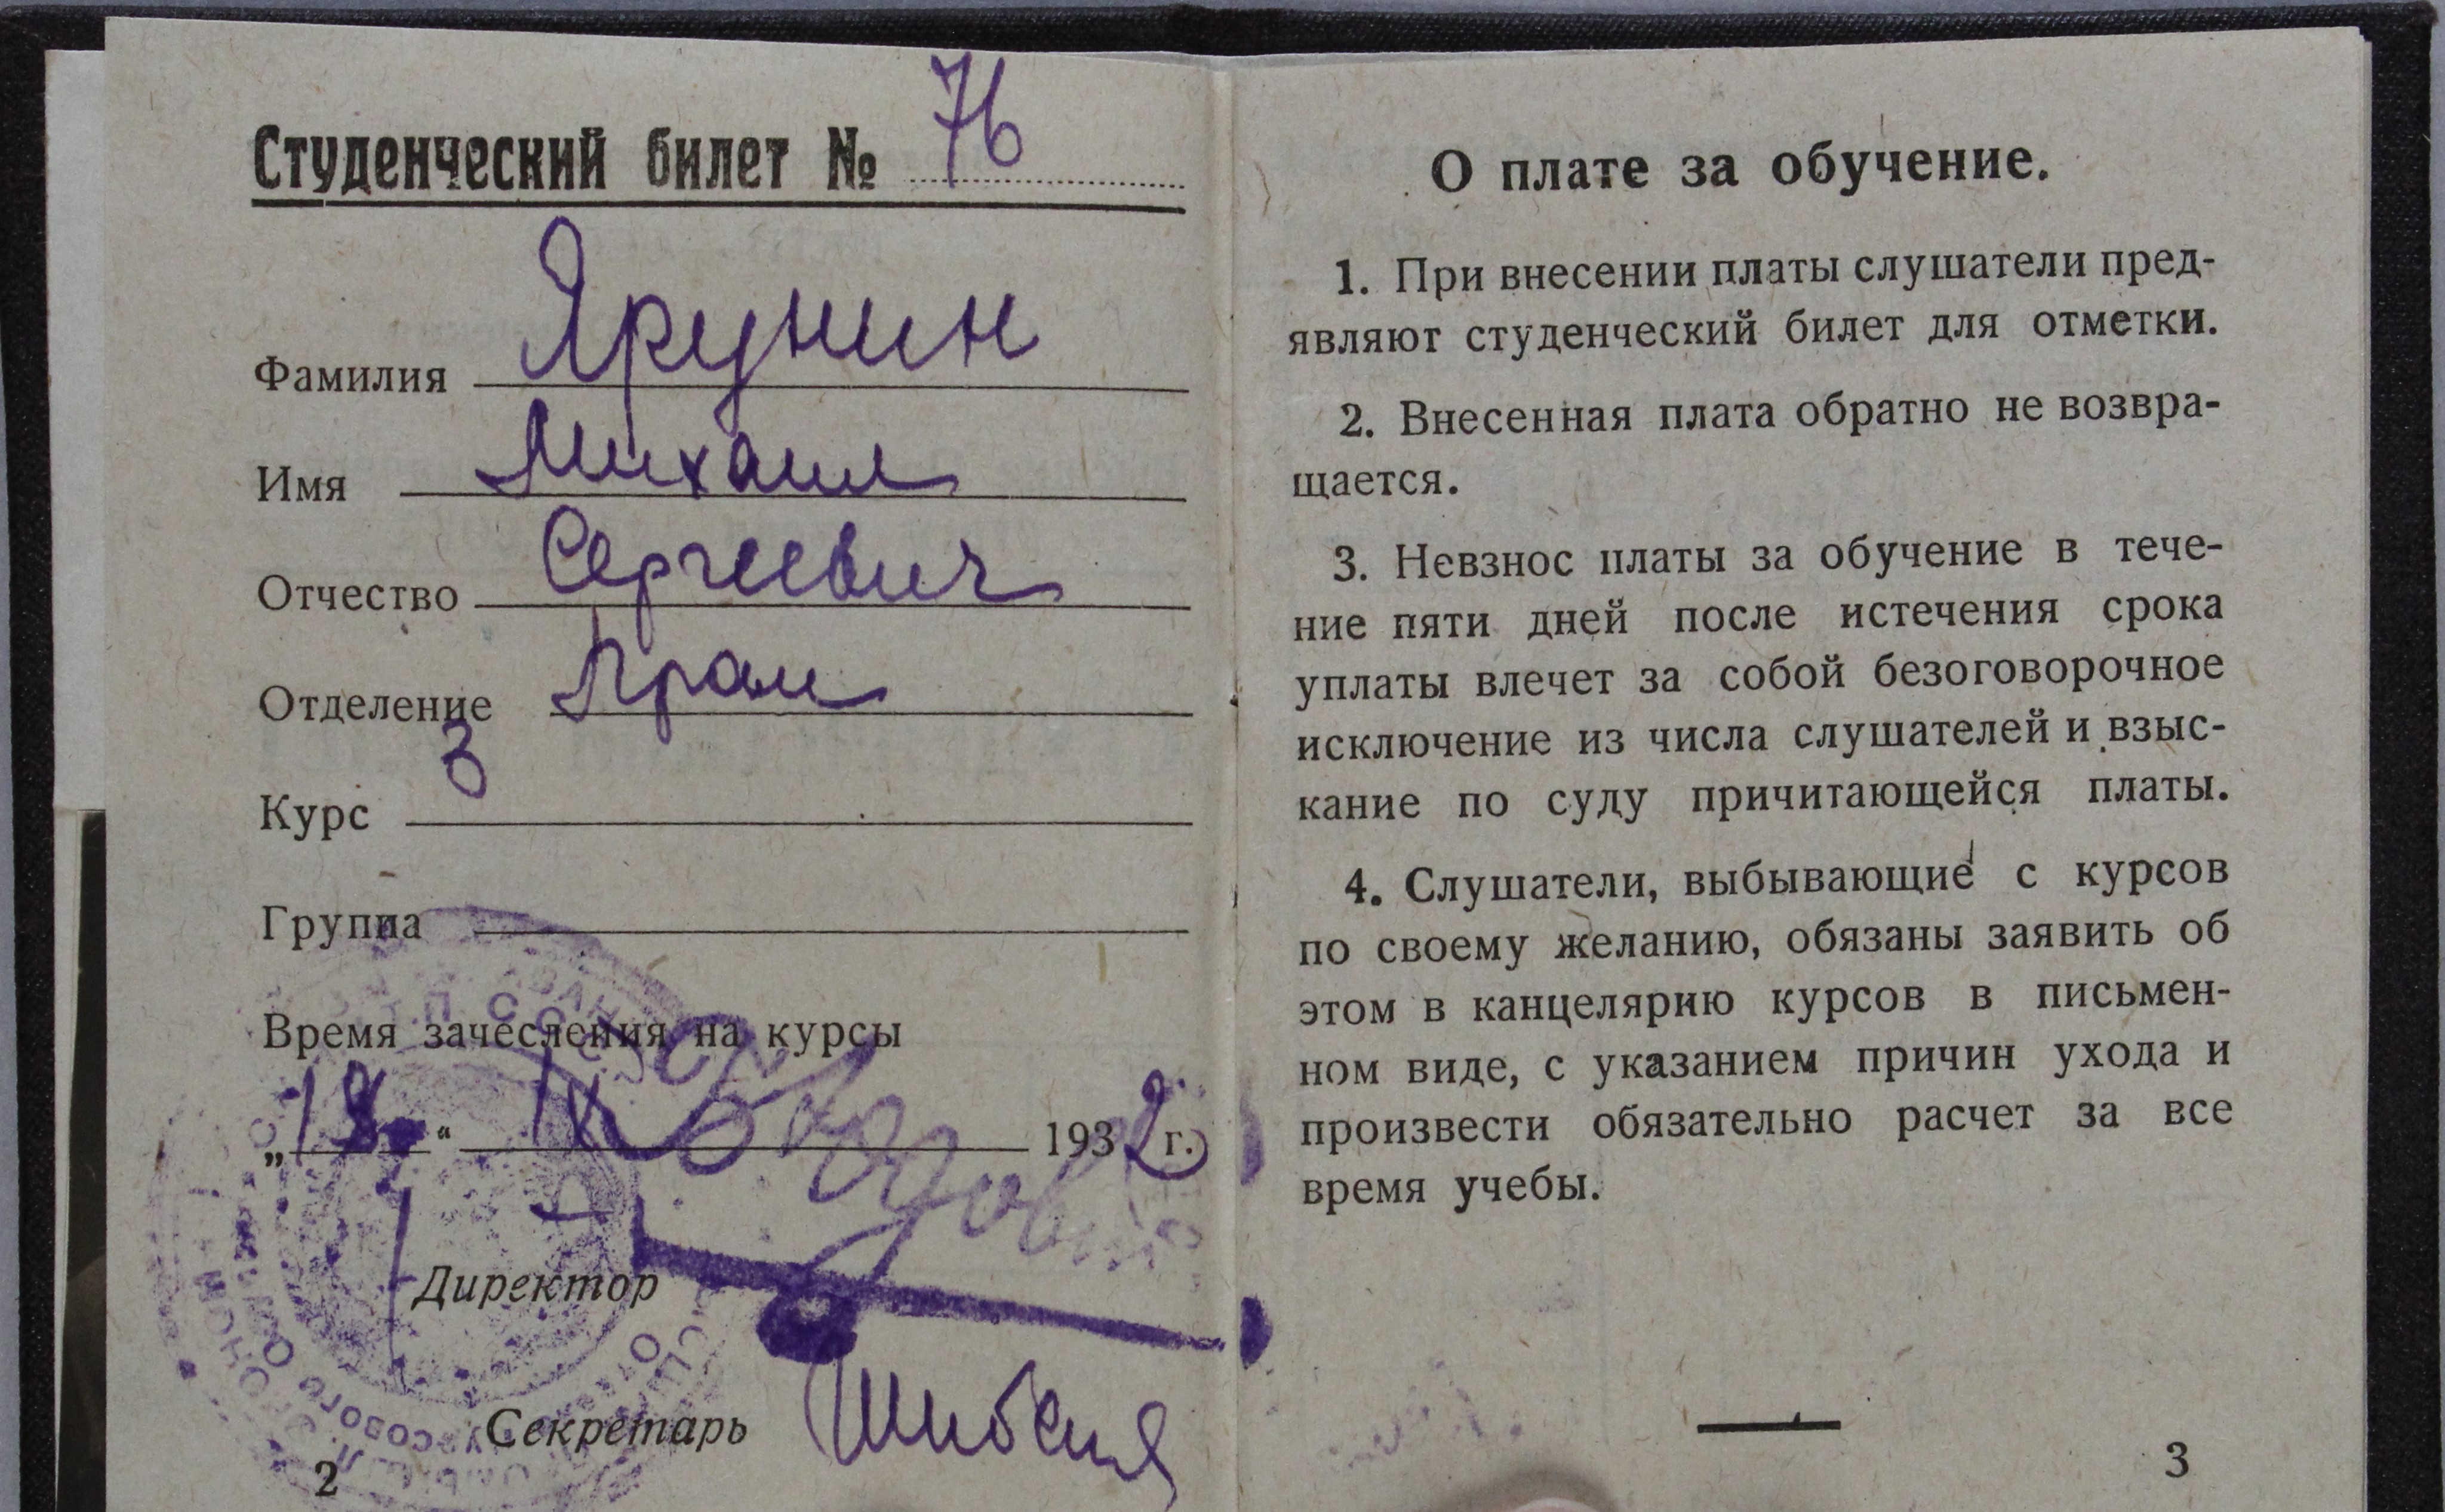 Студенческий билет № 76
Фамилия Ярунин
Имя Михаил
Отчество Сергеевич
Отделение
Курс 3
Группа
Время зачесления на курсы
„ “ 1932 г.
Директор
Секретарь
2
О плате за обучение.
1. При внесении платы слушатели пред-
являют студенческий билет для отметки.
2. Внесенная плата обратно не возвра-
щается.
3. Невзнос платы за обучение в тече-
ние пяти дней после истечения срока
уплаты влечет за собой безоговорочное
исключение из числа слушателей и взыс-
кание по суду причитающейся платы.
4. Слушатели, выбывающие с курсов
по своему желанию, обязаны заявить об
этом в канцелярию курсов в письмен-
ном виде, с указанием причин ухода и
произвести обязательно расчет за все
время учебы.
3